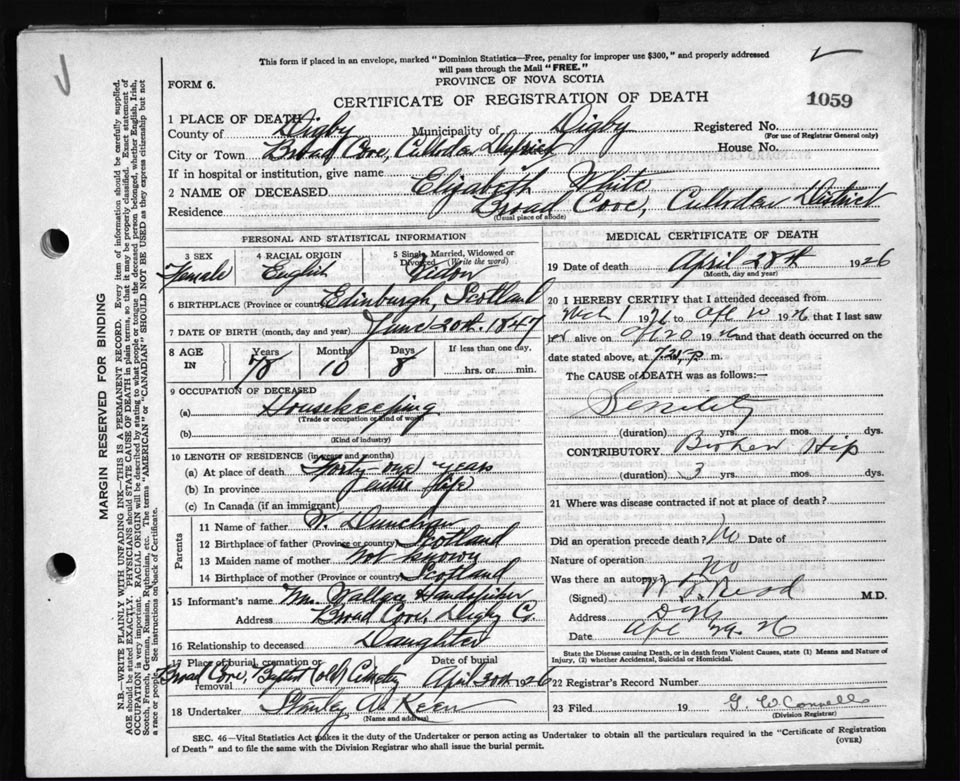 This form if placed in an envelope, marked "Dominion Statistics—Free, penalty for improper use $300," and properly addressed
will pass through the Mail "FREE."
FORM 6.
PROVINCE OF NOVA SCOTIA
CERTIFICATE OF REGISTRATION OF DEATH
1059
1 PLACE OF DEATH
County of Digby Municipality of Digby Registered No.
(For use of Registrar General only)
City or Town Broad Cove, Culloden District House No.
If in hospital or institution, give name
2 NAME OF DECEASED Elizabeth White
Residence Broad Cove, Culloden District
(Usual place of abode)
PERSONAL AND STATISTICAL INFORMATION
3 SEX Female
4 RACIAL ORIGIN English
5 Single, Married, Widowed or Divorced (Write the word) Widow
6 BIRTHPLACE (Province or country) Edinburgh, Scotland
7 DATE OF BIRTH (month, day and year) June 20th. 1847
8 AGE IN Years 78 Months 10 Days 8 If less than one day. hrs. or min.
9 OCCUPATION OF DECEASED
(a) Housekeeping
(Trade or occupation or kind of work)
(b)
(Kind of industry)
10 LENGTH OF RESIDENCE (in years and months)
(a) At place of death Forty-one years
(b) In province entire life
(c) In Canada (if an immigrant)
Parents
11 Name of father W.
12 Birthplace of father (Province or country) Scotland
13 Maiden name of mother Not known
14 Birthplace of mother (Province or country) Scotland
15 Informant's name Mrs. Wallace Handspiker
Address Broad Cove, Digby C.
16 Relationship to deceased Daughter
17 Place of burial, cremation or removal Broad Cove, Baptist (old) Cemetery
Date of burial April 30th 1926
18 Undertaker Stanley A. Keen
(Name and address)
MEDICAL CERTIFICATE OF DEATH
19 Date of death April 28th 1926
(Month, day and year)
20 I HEREBY CERTIFY that I attended deceased from
Mch 1 1926 to Apl 20 1926 that I last saw
her alive on Apl 20 1926 and that death occurred on the
date stated above, at m.
The CAUSE of DEATH was as follows:—
Senility
(duration) yrs. mos. dys.
CONTRIBUTORY Broken Hip
(duration) 3 yrs. mos. dys.
21 Where was disease contracted if not at place of death?
Did an operation precede death? No Date of
Nature of operation
Was there an autopsy? No
(Signed) M.D.
Address Digby
Date Apl 29 26
State the Disease causing Death, or in death from Violent Causes, state (1) Means and Nature of
Injury, (2) whether Accidental, Suicidal or Homicidal.
22 Registrar's Record Number
23 Filed 19 G. W. Connell
(Division Registrar)
SEC. 46—Vital Statistics Act makes it the duty of the Undertaker or person acting as Undertaker to obtain all the particulars required in the "Certificate of Registration
of Death" and to file the same with the Division Registrar who shall issue the burial permit.
(OVER)
MARGIN RESERVED FOR BINDING
N.B.—WRITE PLAINLY WITH UNFADING INK—THIS IS A PERMANENT RECORD. Every item of information should be carefully supplied.
AGE should be stated EXACTLY. PHYSICIANS should STATE CAUSE OF DEATH in plain terms, so that it may be properly classified. Exact statement of
OCCUPATION is very important. RACIAL ORIGIN will be described by stating to what people or tongue the deceased person belonged, whether English, Irish,
Scotch, French, German, Russian, Ruthenian, etc. The terms "AMERICAN" or "CANADIAN" SHOULD NOT BE USED as they express citizenship but not
a race or people. See instructions on back of Certificate.